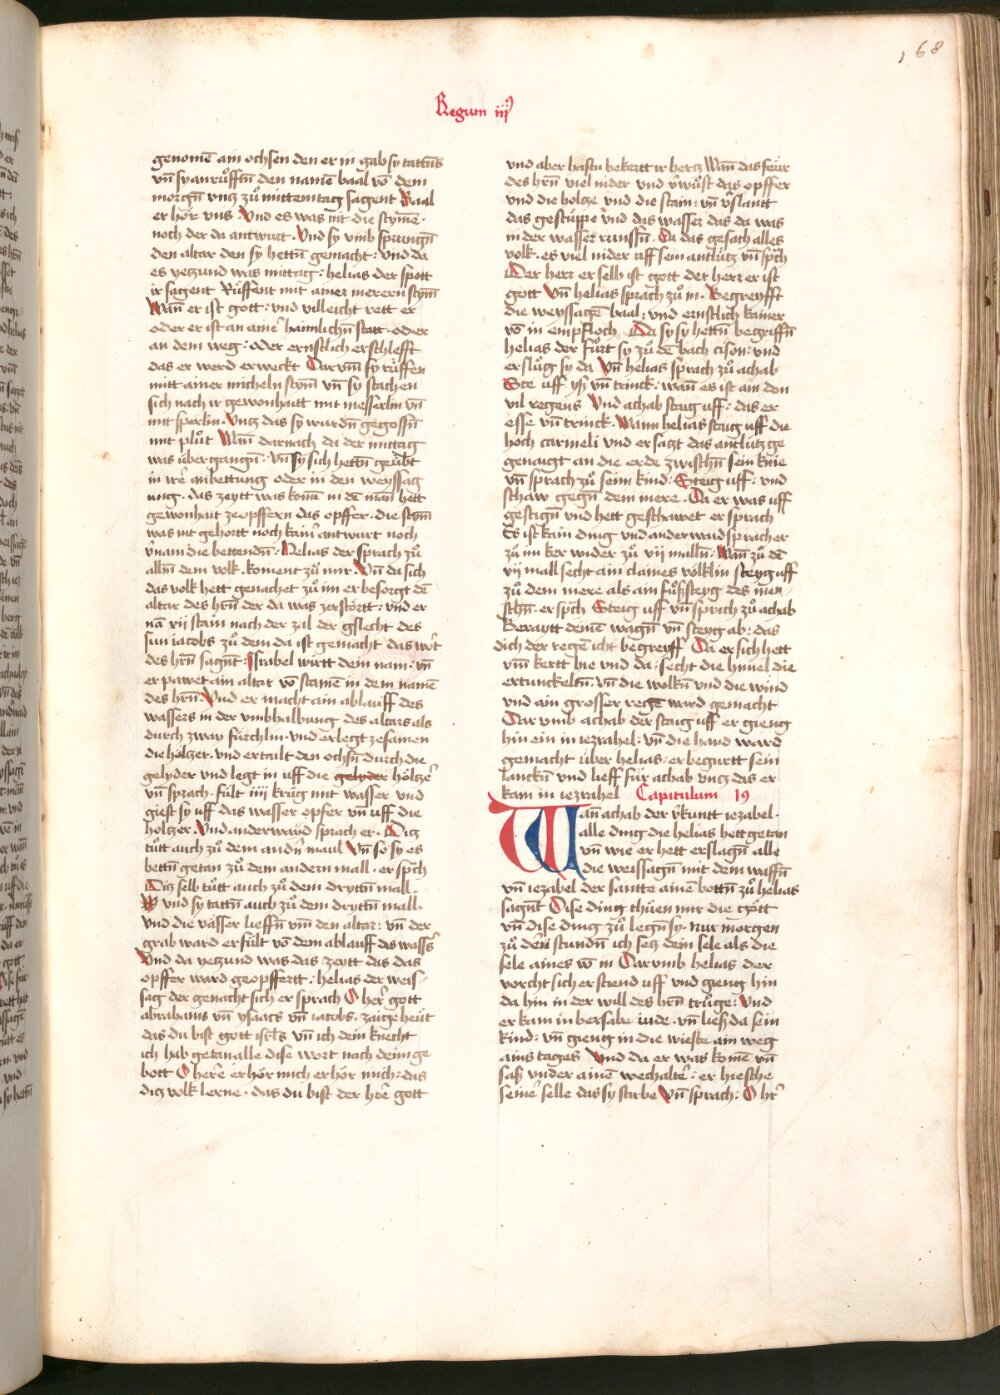 168
Regum iij
genomē ain ochsen den er in gab sy tattēs
vn̄ sy anrůfftn̄ den namē baal vō dem
morgn̄ vntz zů mittemtag sagent Baal
er hör vns Vnd es was nit die stymē·
noch der da antwurt· Vnd sy vmb sprungn̄
den altar den sy hettn̄ gemacht· vnd da
es yetzund was mittag: helias der spott
ir sagent Růffent mit ainer merern stym̄
Wan̄ er ist gott: vnd villeicht rett er
oder er ist an aine͛ haimlichn̄ statt· oder
an dem weg: oder ernstlich er schlefft
das er werd erweckt Darvm̄ sy růffen
mitt ainer micheln stym̄ vn̄ sy stachen
sich nach ir gewonhaitt mit messerlin vn̄
mit sperlin· Vntz das sy wurdn̄ gegossn̄
mit plůt Wan̄ darnach da der mittag
was über gangn̄· vn̄ sy sich hettn̄ geůbt
in ire͛ anbettung oder in den weyssag
ung· das zeytt was komē in dē man̄ hett
gewonhait ze opffern das opffer· die stym̄
was nit gehortt noch kain͛ antwurt noch
v͛nam die bettendn̄: Helias der sprach zů
alln̄ dem volk· koment zů mir· Vn̄ da sich
das volk hett genachet zů im er besorgt dē
altar des hrn̄ der da was zerstörtt: vnd er
nā xij stain nach der zal der gslecht des
sun iacobs zů dem da ist gemacht das wort
des hrn̄ sagn̄t: Israhel wirtt dein nam: vn̄
er pawet ain altar vō stainē in dem namē
des hrn̄· Vnd er macht ain ablauff des
wassers in der vmbhalbung des altars als
durch zway fürchlin· vnd er legt zesamen
die höltzer· vnd er tailt den ochsn̄ durch die
gelyder vnd legt in uff die gelyder höltze͛
vn̄ sprach· fült iiij krüg mit wasser vnd
giest sy uff das wasser opfer vn̄ uff die
höltzer· Vnd anderwayd sprach er· Ditz
tůtt auch zů dem andn̄ maul Vn̄ so sy es
hettn̄ getan zů dem andern mall· er sp͛ch
Ditz selb tůtt auch zů dem drytn̄ mall·
W vnd sy tattn̄ auch zů dem drytn̄ mall·
Vnd die wässer lieffn̄ vm̄ den altar: vn̄ der
grab ward erfült vō dem ablauff des wassͤs
Vnd da yetzund was das zeytt das das
opffer ward geopffertt: helias der weis-
sag der genacht sich er sprach O her͛ gott
abrahams vn̄ ysaacs vn̄ iacobs· zaige heüt
das du bist gott isr͛ls vn̄ ich dein knecht
ich hab getan alle dise wort nach deim ge-
bott O here er hör mich er hör mich: das
ditz volk lerne· das du bist der hr͛e gott
vnd aber hastu bekertt ir hertz Wan̄ das feür
des hrn̄ viel nider vnd v͛wůst das opffer
vnd die höltze vnd die stain: vn̄ v͛slantt
das gestüppe vnd das wasser das da was
in der wasser runssn̄· Da das gesach alles
volk· es viel nider uff sein antlütz vn̄ sp͛ch
Der herr er selb ist gott der herr er ist
gott Vn̄ helias sprach zů in· Begreyfft
die weyssagē baal: vnd ernstlich kainer
vō in empfloch Da sy sy hettn̄ begriffn̄
helias der fůrt sy zů dē bach cison: vnd
er slůg sy da Vn̄ helias sprach zů achab
Ste uff ysß vn̄ trinck· wan̄ es ist ain don
vil regens Vnd achab staig uff: das er
esse vn̄ trinck· Wann helias staig uff die
hoch carmeli vnd er satzt das antlütz ge
genaigt an die erde zwischn̄ sein knie
vn̄ sprach zů seim kind: Steig uff: vnd
schaw gegn̄ dem mere· Da er was uff
gestign̄ vnd hett geschawet er sprach
Es ist kain ding vnd anderwaid sprach er
zů im ker wider zů vij malln̄· Wan̄ zů dē
vij mall secht ain claines völklin steyg uff
zů dem mere als ain fůßsteyg des men-
schn̄· er sp͛ch Steig uff vn̄ sprach zů achab
Beraytt deinē wagn̄ vn̄ steyg ab: das
dich der regē icht begreyff Da er sich hett
vm̄ kertt hie vnd da: secht die himel die
ertunckeltn̄: vn̄ die wolkn̄ vnd die wind
vnd ain grosser regē ward gemacht
Dar vmb achab der staig uff er gieng
hin ein in iezrahel: vn̄ die hand ward
gemacht über helias· er begurtt sein
lanckn̄ vnd lieff für achab vntz das er
kam in iezrahel Capitulum 19
Wan̄ achab der v͛kuntt iezabel·
alle ding die helias hett getan
vn̄ wie er hett erslagn̄ alle
die weissagn̄ mit dem waffn̄
vn̄ iezabel der santte ainē bottn̄ zů helias
sagn̄t Dise ding thüen mir die gött
vn̄ dise ding zů legn̄ sy· nur morgen
zů den stundn̄ ich setz dein sele als die
sele aines vō in Darvmb helias der
vorcht sich er stiend uff vnd gieng hin
da hin in der will des hrn̄ trůge: Vnd
er kam in bersabe iude· vn̄ ließ da sein
kind: vn̄ gieng in die wieste ain weg
ains tages Vnd da er was komē vn̄
saß vnder ainē wechalte͛: er hiesche
seine͛ selle das sy sturbe Vn̄ sprach: O hr͛